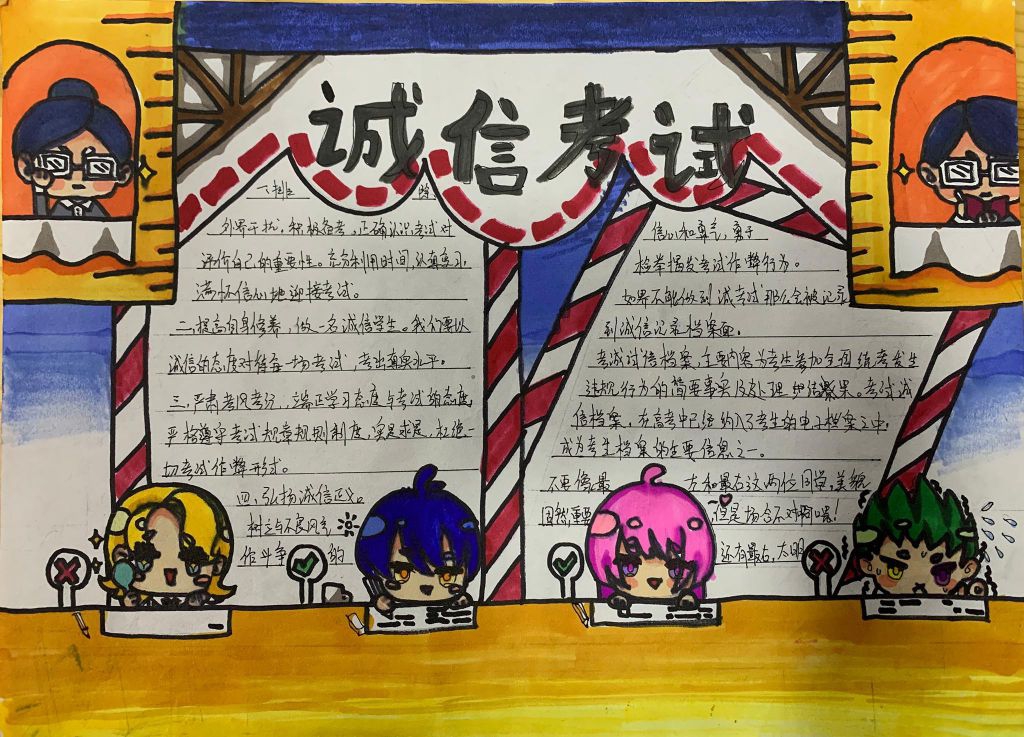 诚信考试
一、排除
外界干扰，积极备考，正确认识考试对
评价自己的重要性。充分利用时间，认真复习，
满怀信心地迎接考试。
二、提高自身修养，做一名诚信学生。我们要以
诚信的态度对待每一场考试，考出真实水平。
三、严肃考风考纪，端正学习态度与考试的态度，
严格遵守考试规章规则制度，实事求是，杜绝一
切考试作弊形式。
四、弘扬诚信正义。
树立与不良风气
作斗争 的
信心和勇气，勇于
检举揭发考试作弊行为。
如果不能做到诚考试那么会被记录
到诚信记录档案里。
考试诚信档案，主要内容为考生参加全国统考发生
违规行为的简要事实及处理 结果。考试诚
信档案，在高考中已经纳入了考生的电子档案之中，
成为考生档案的主要信息之一。
不要像最 左和最右这两位同学，美貌
固然重要 但是场合不对
还有最右，太明